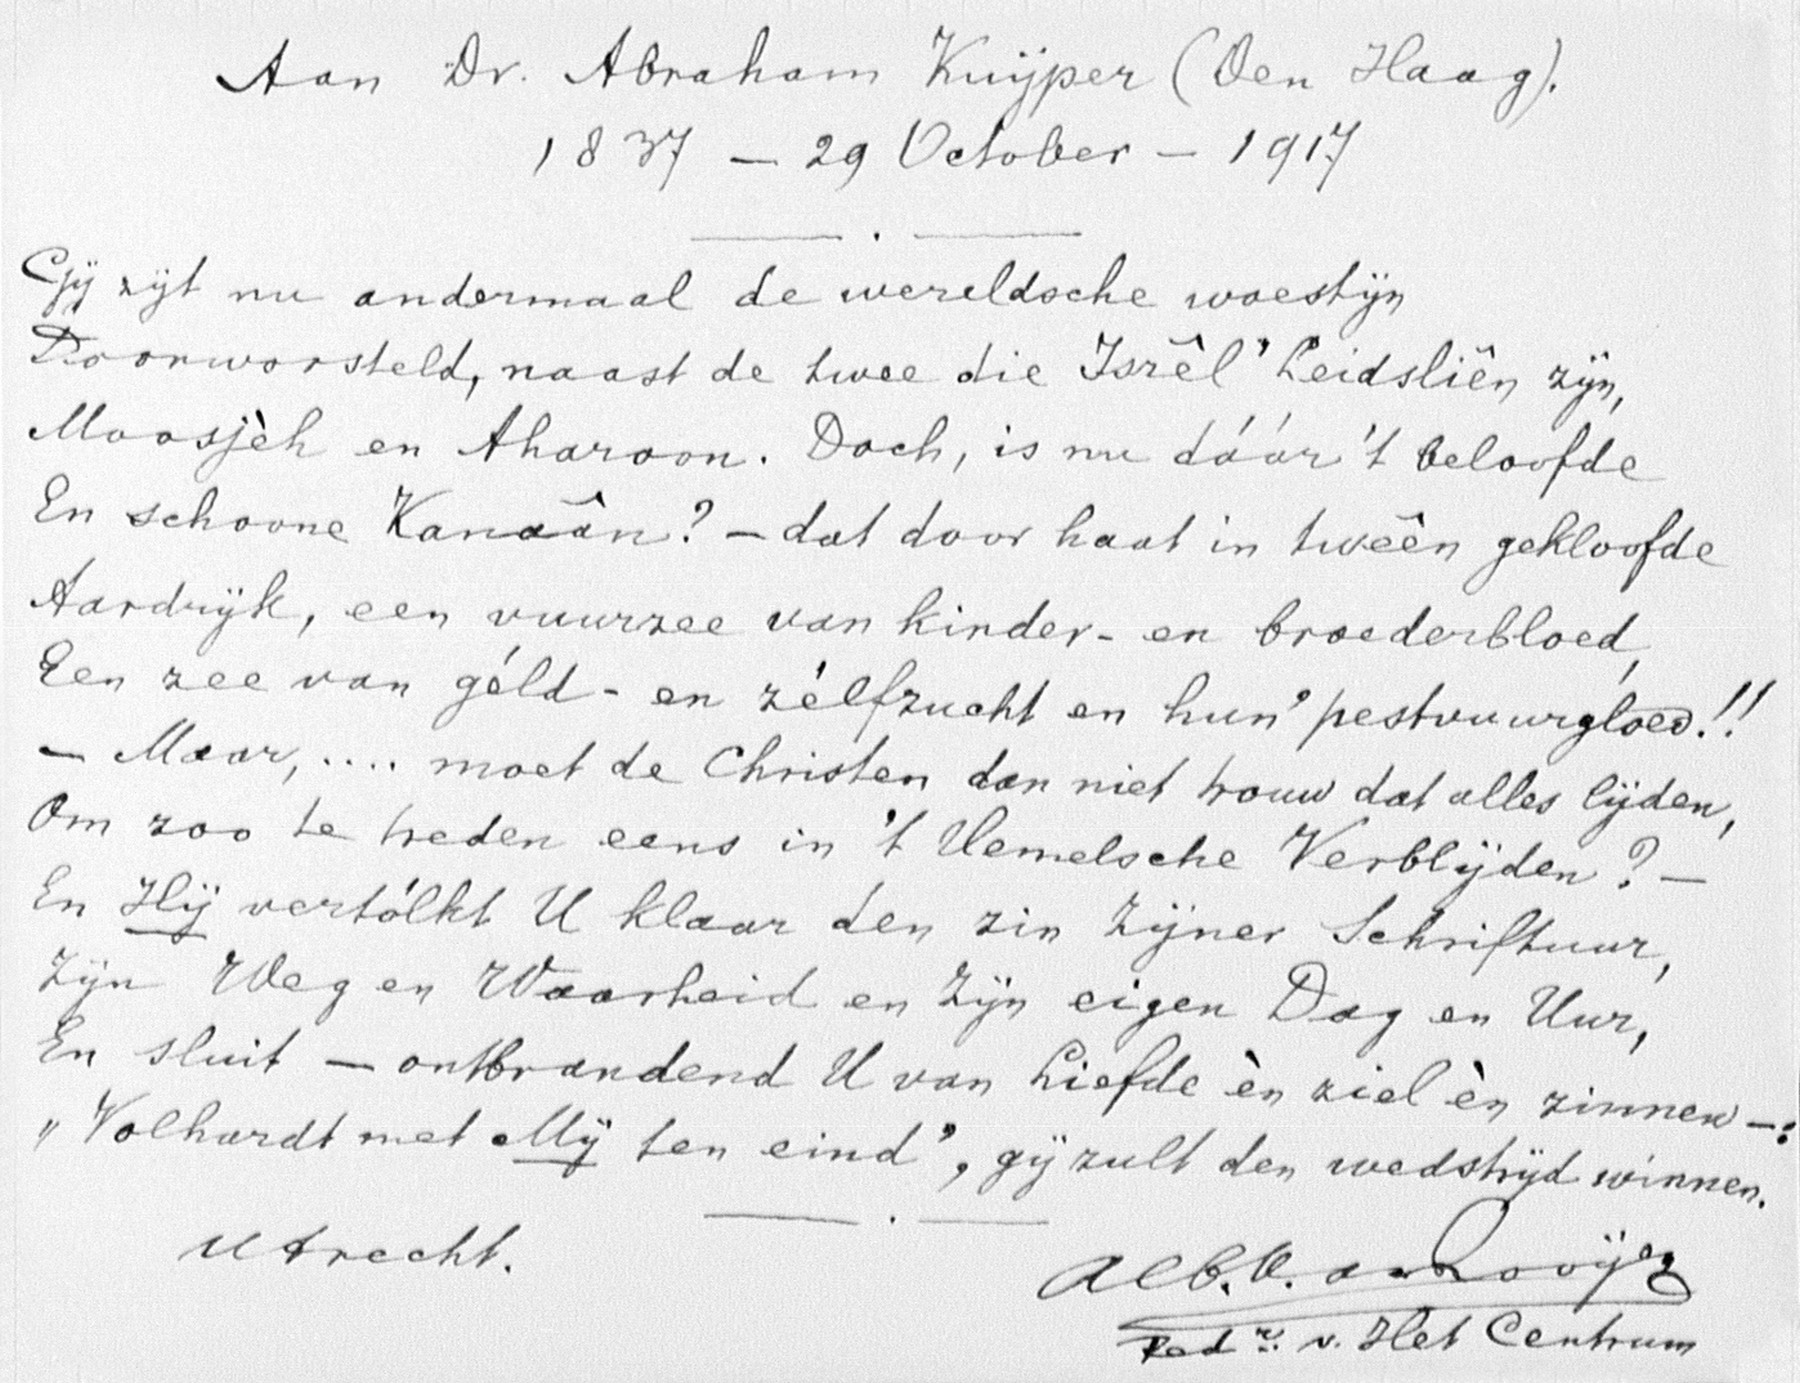 Aan Dr. Abraham Kuijper (Den Haag).
1837 — 29 October — 1917
Gij zijt nu andermaal de wereldsche woestijn
Doorworsteld, naast de twee die Isrêl' Leidsliên zijn,
Moosjèh en Aharoon. Doch, is nu dáár 't beloofde
En schoone Kanaän? — dat door haat in tweên gekloofde
Aardrijk, een vuurzee van kinder- en broederbloed,
Een zee van géld- en zélfzucht en hun' pestvuurgloed!!
— Maar, .... moet de Christen dan niet trouw dat alles lijden,
Om zoo te treden eens in 't Hemelsche Verblijden? —
En Hij vertólkt U klaar den zin Zijner Schriftuur,
Zijn Weg en Waarheid en Zijn eigen Dag en Uur,
En sluit — ontbrandend U van Liefde èn ziel èn zinnen —:
„Volhardt met Mij ten eind", gij zult den wedstrijd winnen.
Utrecht.
Alb. V.
Redr. v. Het Centrum